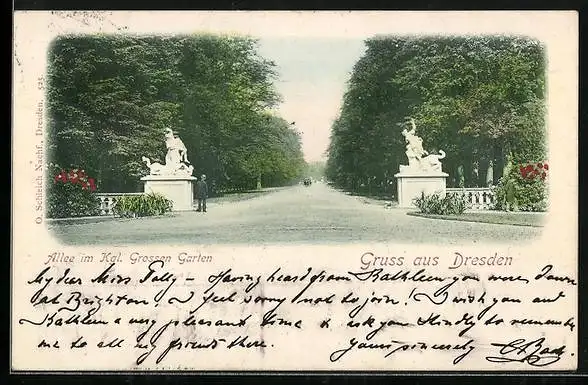 O. Schleich Nachf., Dresden. 525
Allee im Kgl. Grossen Garten
Gruss aus Dresden
My dear Miss Tolly – Having heard from Kathleen you were down
at Brighton. I feel sorry not to join! I wish you and
Kathleen a very pleasant time & ask you kindly to remember
me to all my friends there. Yours sincerely